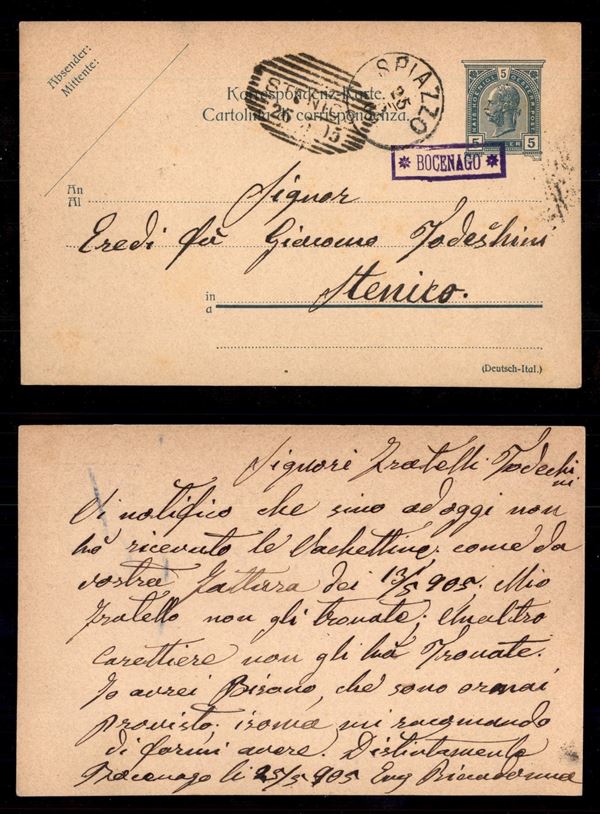 Absender:
Mittente:
Korrespondenz-Karte.
Cartolina di corrispondenza.
STENICO
26
SPIAZZO
25
5
5 5
✻ BOCENAGO ✻
An
Al
Signor
Eredi fu Giacomo Todeshini
in
a
Stenico.
(Deutsch-Ital.)
Signori Fratelli Todechini
Vi notifico che sino ad oggi non
ho ricevuto le Sachettine come da
vostra Fattura dei 13/5 905. Mio
Fratello non gli trovate; un altro
carettiere non gli ha Trovate.
Io avrei Bisono, che sono ormai
provisto, mi racomando
di farmi avere. Distintamente
Bocenago li 25/5 905